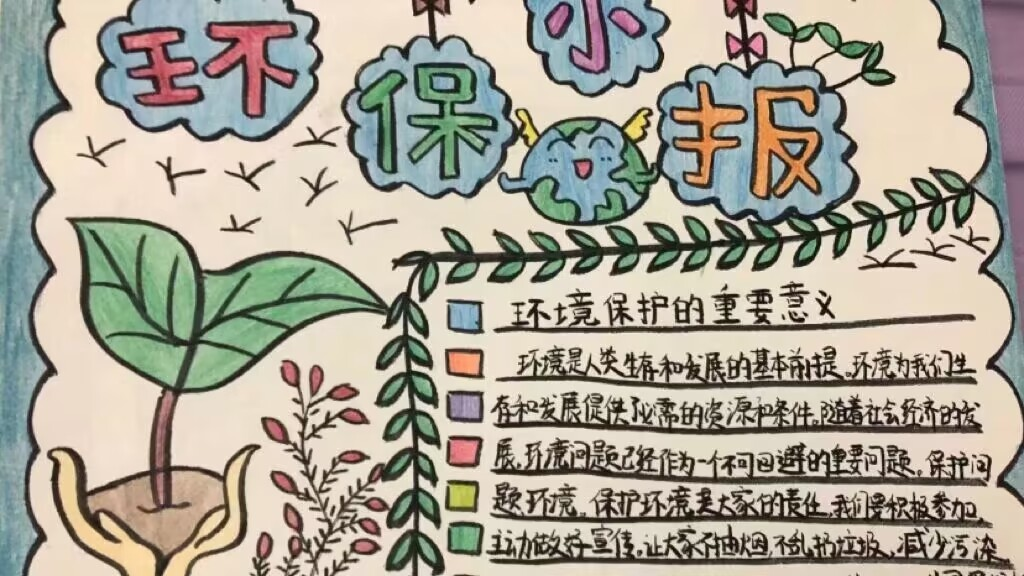 环保小报
环境保护的重要意义
环境是人类生存和发展的基本前提。环境为我们生
存和发展提供了必需的资源和条件。随着社会经济的发
展，环境问题已经作为一个不可回避的重要问题。保护问
题环境。保护环境是大家的责任。我们要积极参加，
主动做好宣传，让大家不抽烟不乱扔垃圾，减少污染